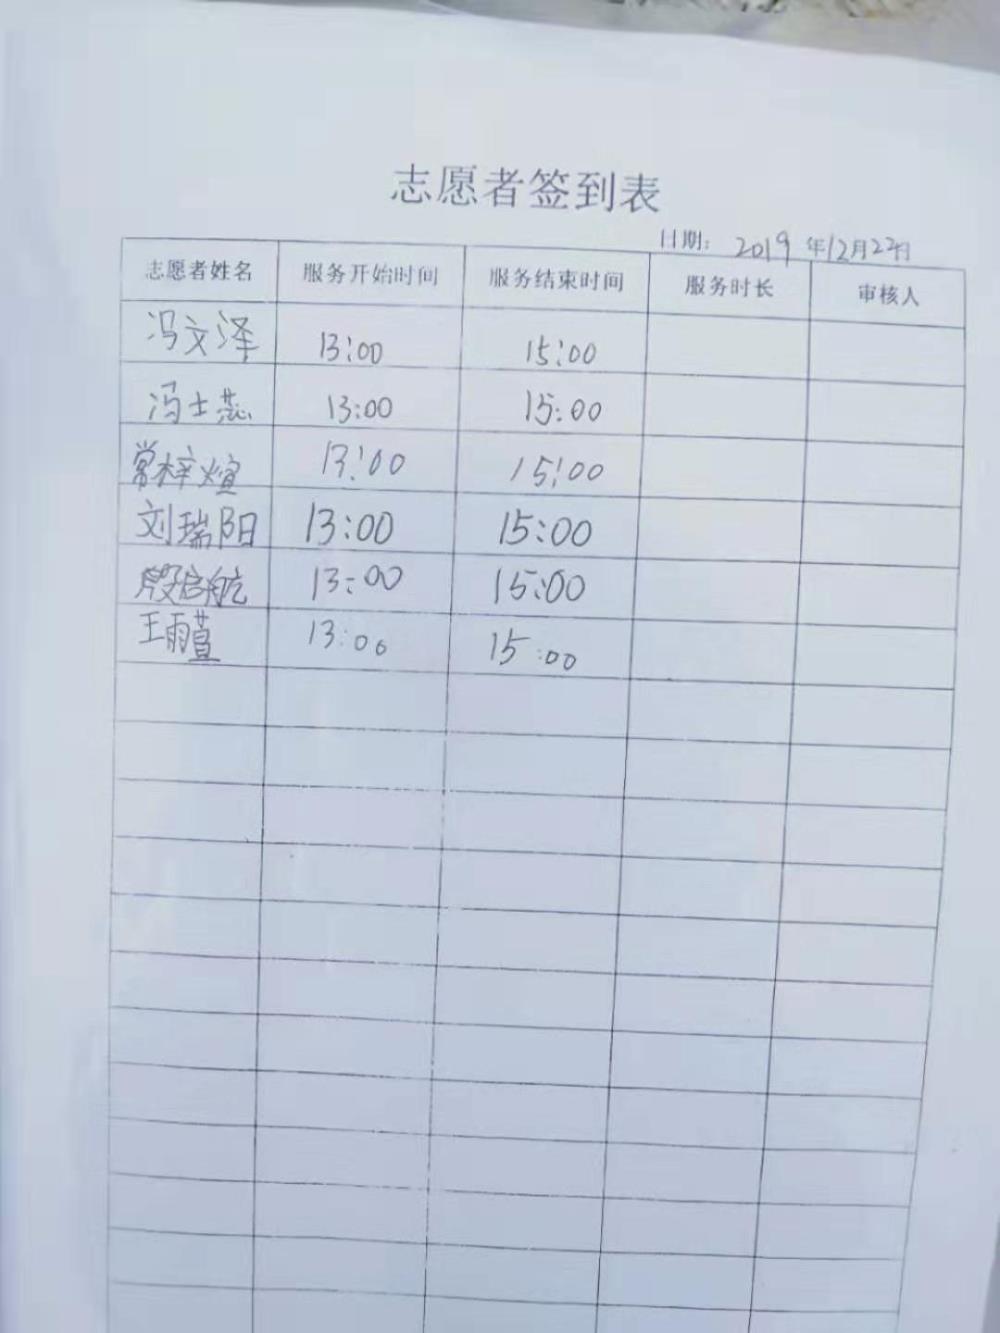 志愿者签到表
日期: 2019 年12月22日
志愿者姓名 服务开始时间 服务结束时间 服务时长 审核人
冯文泽 13:00 15:00
冯士蕊 13:00 15:00
常梓煊 13:00 15:00
刘瑞阳 13:00 15:00
殷启航 13:00 15:00
王雨萱 13:00 15:00